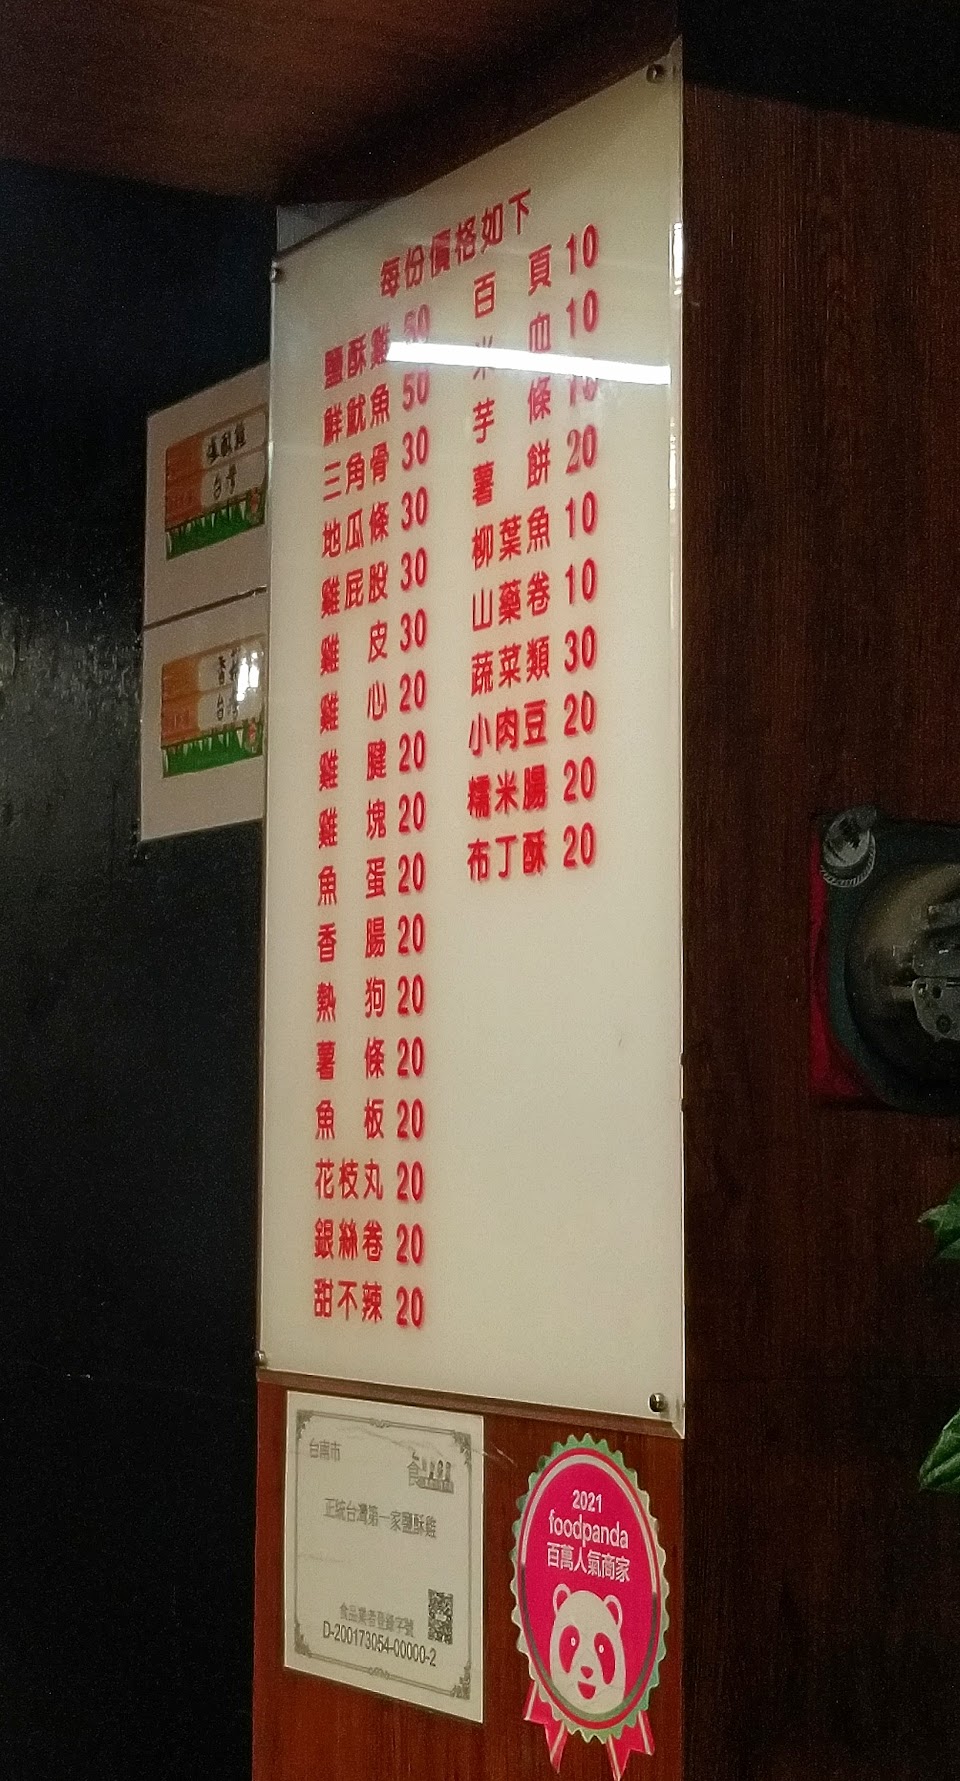 每份價格如下
鹽酥雞 50
鮮魷魚 50
三角骨 30
地瓜條 30
雞屁股 30
雞皮 30
雞心 20
雞腱 20
雞塊 20
魚蛋 20
香腸 20
熱狗 20
薯條 20
魚板 20
花枝丸 20
銀絲卷 20
甜不辣 20
百頁 10
米血 10
芋條 10
薯餅 20
柳葉魚 10
山藥卷 10
蔬菜類 30
小肉豆 20
糯米腸 20
布丁酥 20
台南市
食
正統台灣第一家鹽酥雞
食品業者登錄字號
D-200173054-00000-2
2021
foodpanda
百萬人氣商家